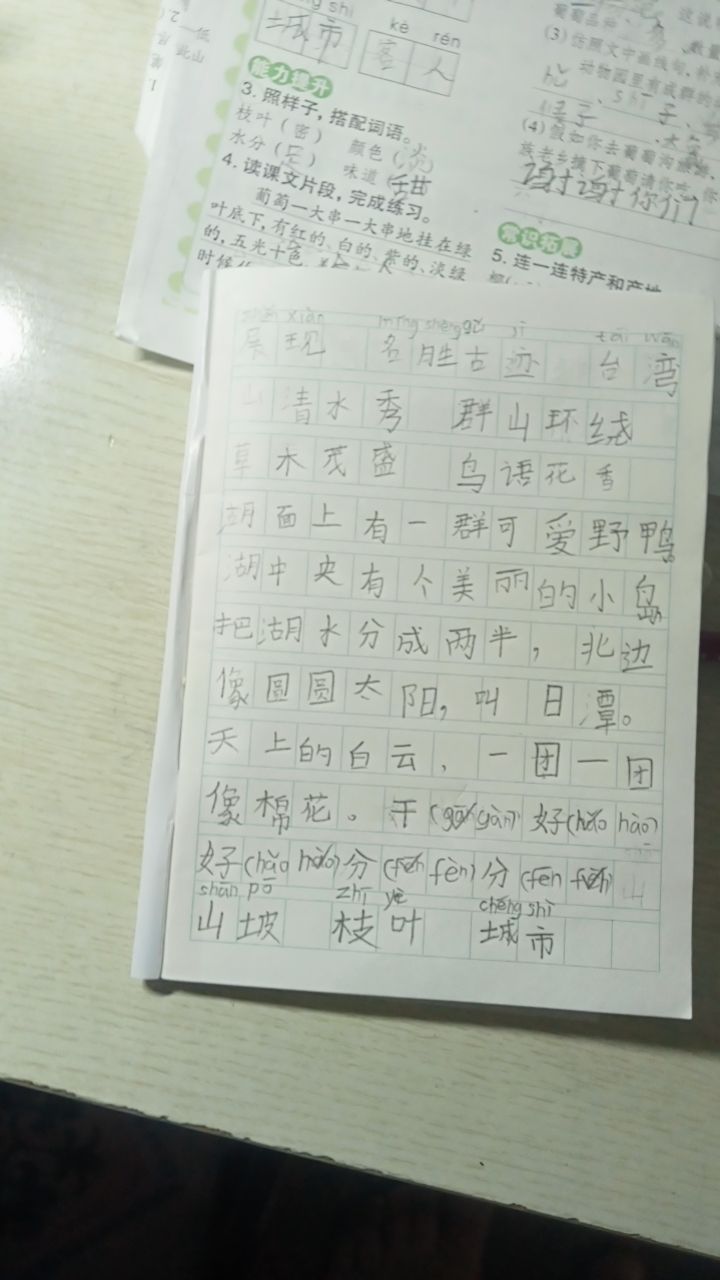 shi
kè rén
城市 客人
能力提升
3. 照样子，搭配词语。
枝叶（密） 颜色（
水分（足） 味道（甘
4. 读课文片段，完成练习。
葡萄一大串一大串地挂在绿
叶底下，有红的、白的、紫的、淡绿
的，五光十色，美
时候
数量
(3) 仿照文中画线句，补
动物园里有成群的
(4) 假如你去葡萄沟旅游，
族老乡摘下葡萄请你吃，你
谢谢你们
常识拓展
5. 连一连特产和产地
xiàn míng shèng gǔ jì tái wān
展现 名胜古迹 台湾
山清水秀 群山环绕
草木茂盛 鸟语花香
湖面上有一群可爱野鸭。
湖中央有个美丽的小岛
把湖水分成两半，北边
像圆圆太阳，叫日潭。
天上的白云，一团一团
像棉花。干(gān gàn) 好(hǎo hào)
好(hǎo hào)分(fēn fèn)分(fēn fèn)山
shān pō zhī yè chéng shì
山坡 枝叶 城市